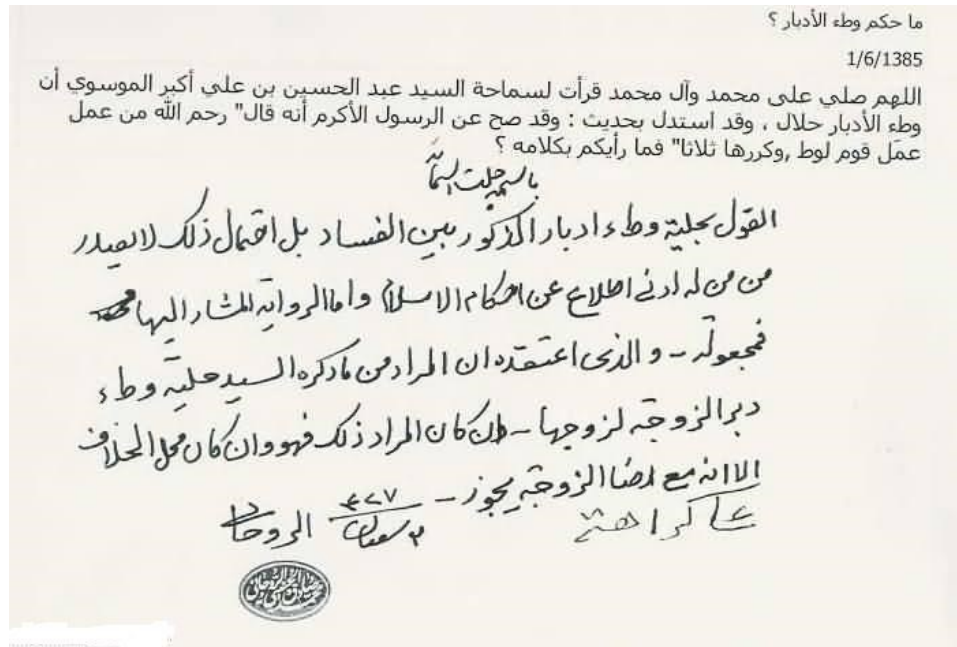 ما حكم وطء الأدبار ؟
1/6/1385
اللهم صلي على محمد وآل محمد قرأت لسماحة السيد عبد الحسين بن علي أكبر الموسوي أن
وطء الأدبار حلال ، وقد استدل بحديث : وقد صح عن الرسول الأكرم أنه قال" رحم الله من عمل
عمَل قوم لوط ,وكررها ثلاثا" فما رأيكم بكلامه ؟
باسمه جلت اسمائه
القول بحلية وطء ادبار الذكور بين الفساد بل احتمال ذلك لا يصدر
من من له ادنى اطلاع عن احكام الاسلام واما الرواية المشار اليها
فمجعولة - والذي اعتقده ان المراد من ما ذكره السيد حلية وطء
دبر الزوجة لزوجها - فان كان المراد ذلك فهو وان كان محل الخلاف
الا انه مع رضا الزوجة يجوز -
على كراهة
الروحاني